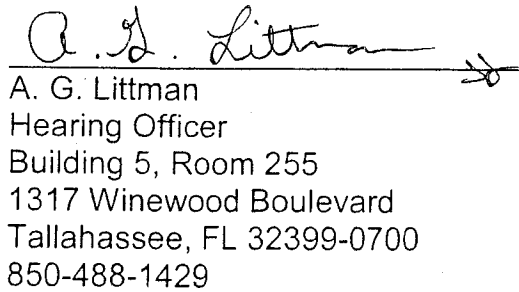 A. G. Littman
A. G. Littman
Hearing Officer
Building 5, Room 255
1317 Winewood Boulevard
Tallahassee, FL 32399-0700
850-488-1429